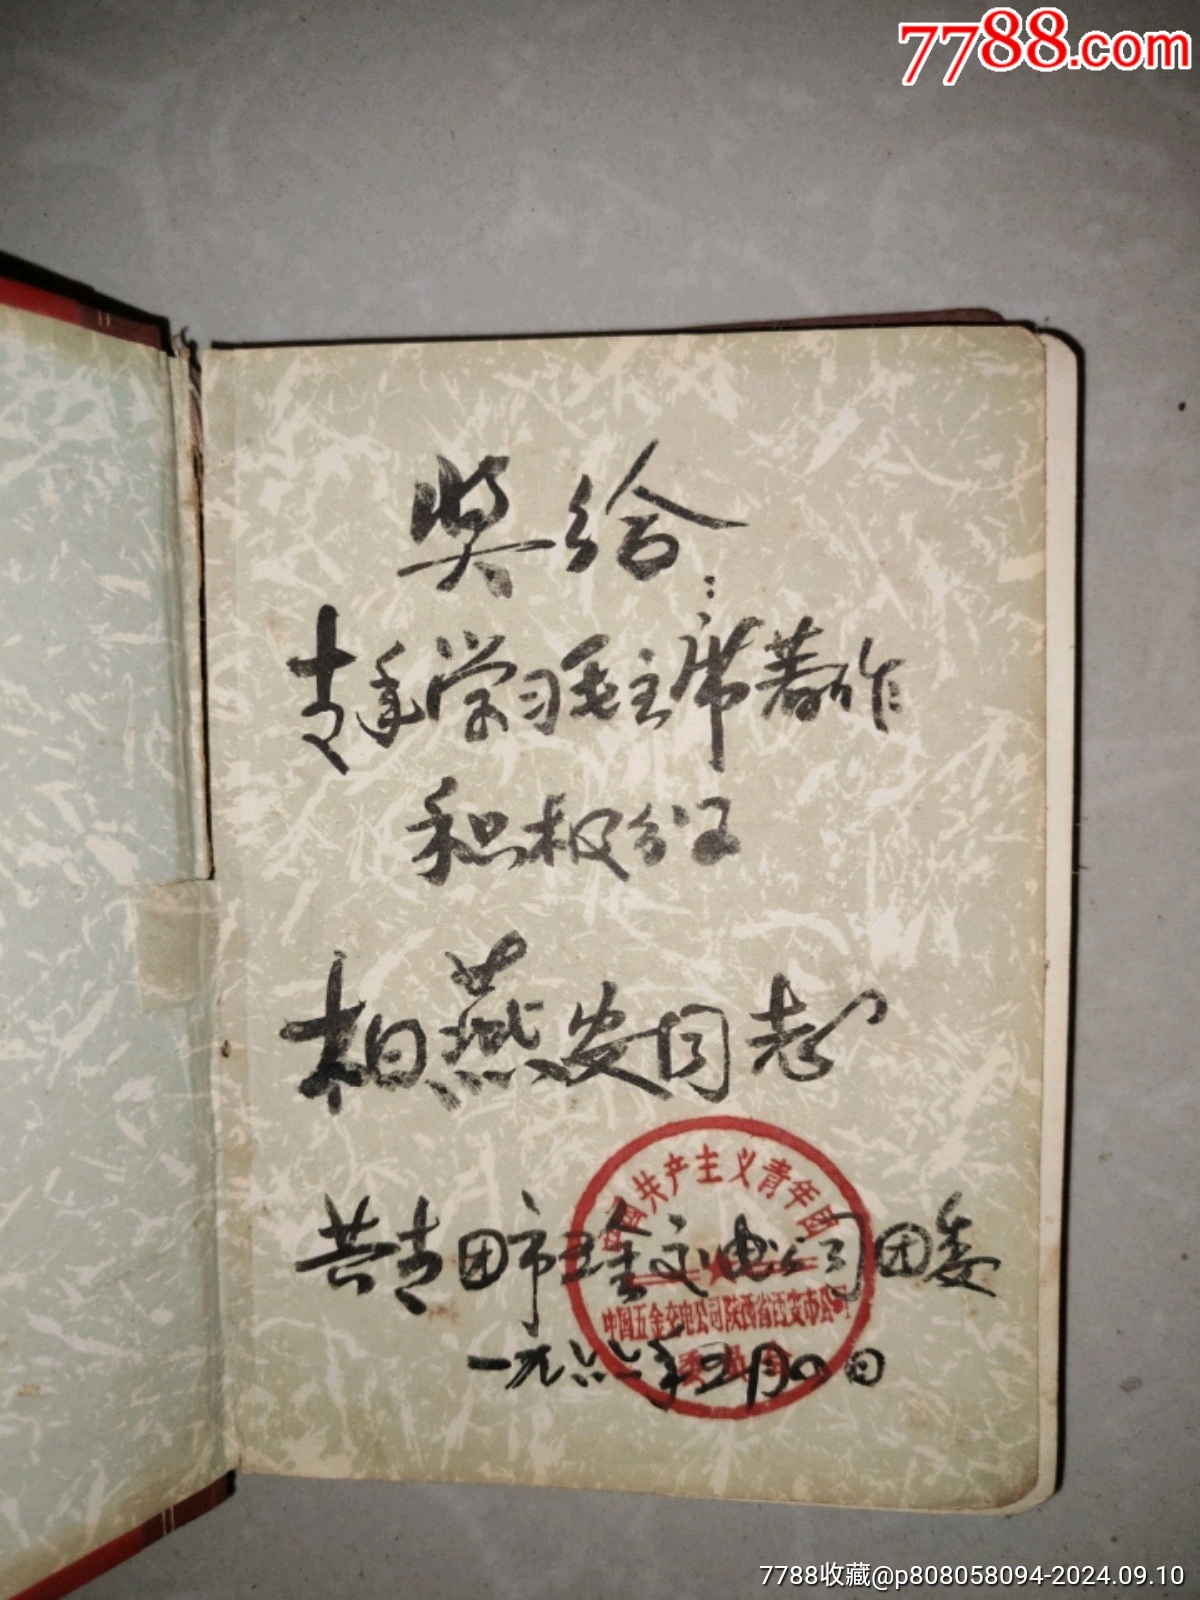 7788.com
奖给:
青年学习毛主席著作
积极分子
柏燕安同志
中国共产主义青年团
共青团市五金交电公司团委
中国五金交电公司陕西省西安市公司
委员会
一九六六年五月四日
7788收藏@p808058094-2024.09.10